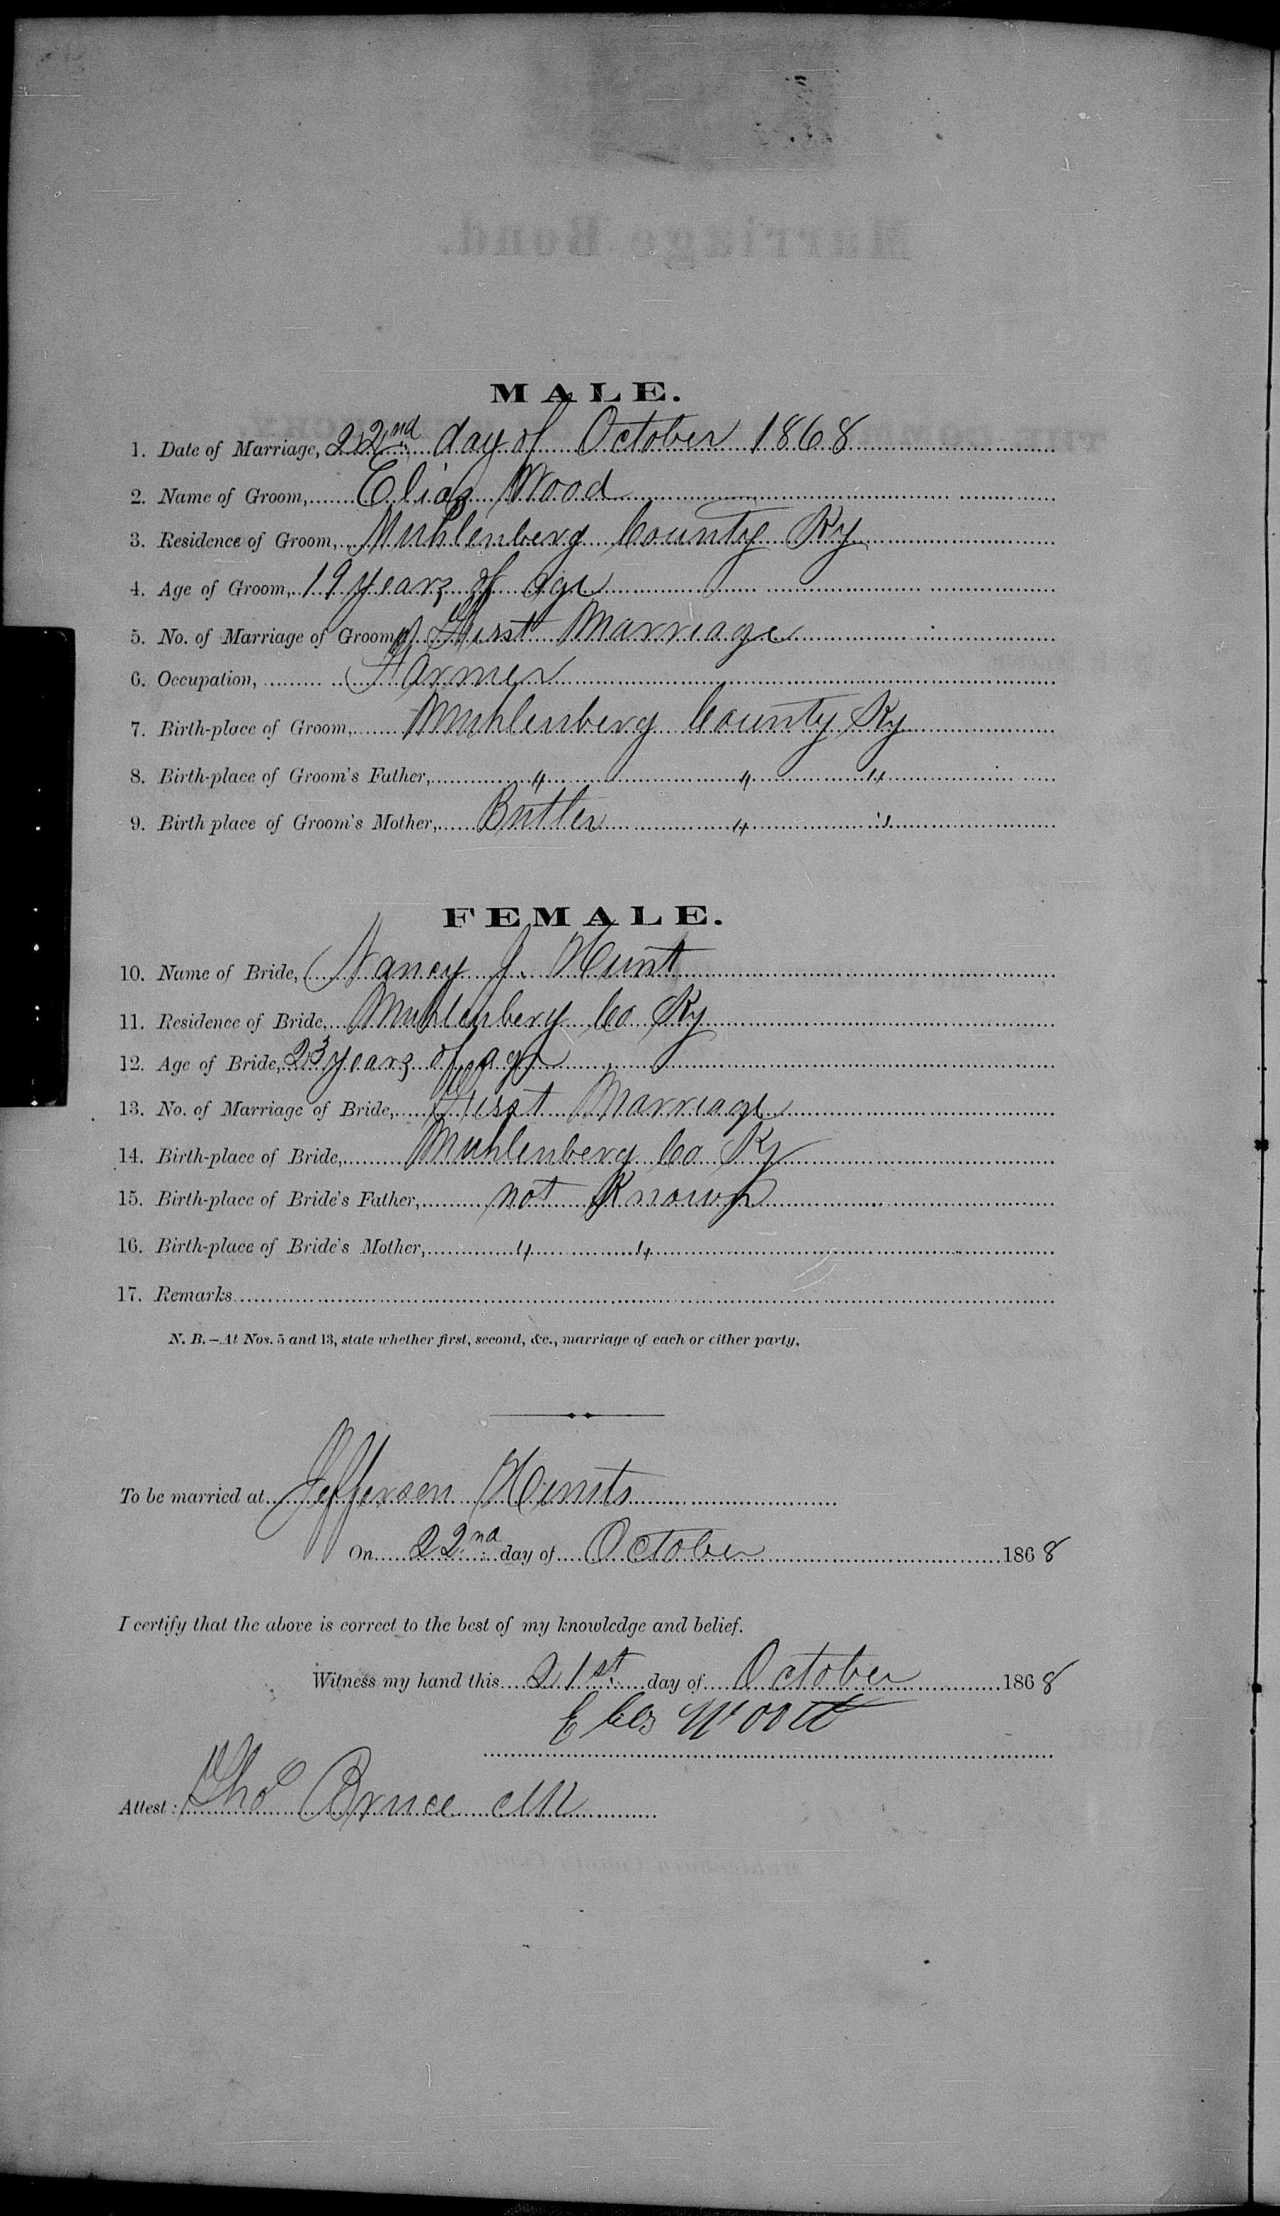 MALE.
1. Date of Marriage, 22nd day of October 1868
2. Name of Groom, Elias Wood
3. Residence of Groom, Muhlenberg County Ky
4. Age of Groom, 19 years of age
5. No. of Marriage of Groom, First Marriage
6. Occupation, Farmer
7. Birth-place of Groom, Muhlenberg County Ky
8. Birth-place of Groom's Father, " " "
9. Birth place of Groom's Mother, Butler " "
FEMALE.
10. Name of Bride, Nancy J. Hunt
11. Residence of Bride, Muhlenberg Co Ky
12. Age of Bride, 23 years of age
13. No. of Marriage of Bride, First Marriage
14. Birth-place of Bride, Muhlenberg Co Ky
15. Birth-place of Bride's Father, not Known
16. Birth-place of Bride's Mother, " "
17. Remarks
N. B.—At Nos. 5 and 13, state whether first, second, &c., marriage of each or either party.
To be married at Jefferson Hunts
On 22nd day of October 1868
I certify that the above is correct to the best of my knowledge and belief.
Witness my hand this 21st day of October 1868
Wood
Attest: Tho Bruce clk